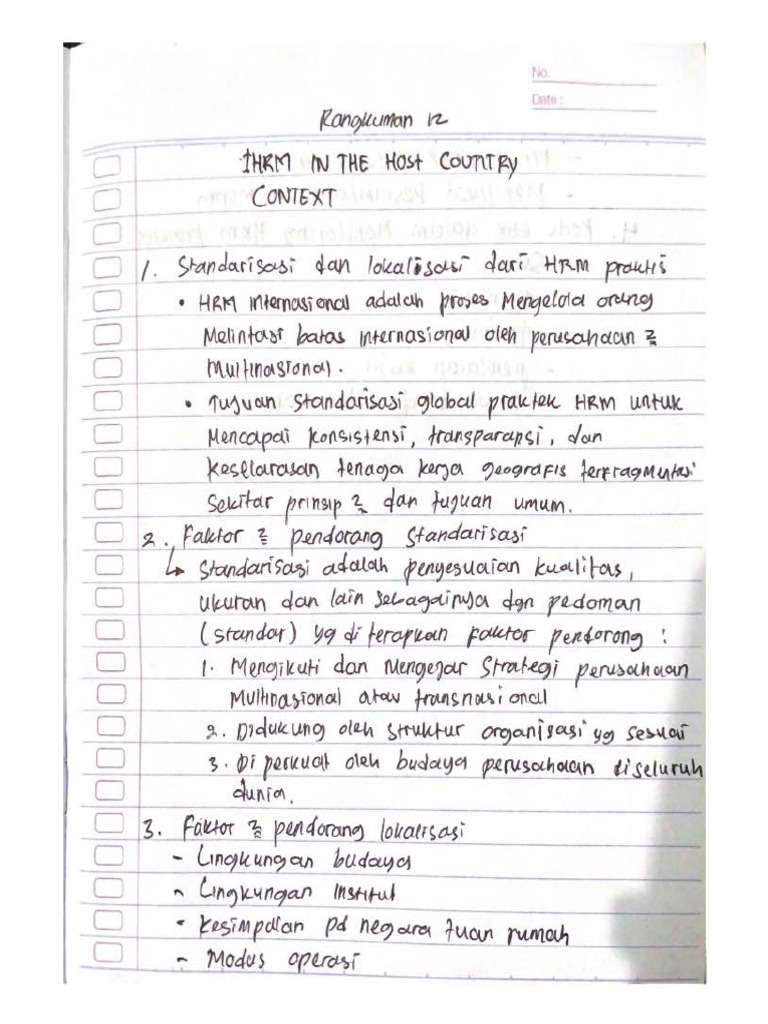 No.
Date :
Rangkuman 12
IHRM IN THE HOST COUNTRY
CONTEXT
1. Standarisasi dan lokalisasi dari HRM praktis
• HRM internasional adalah proses Mengelola orang
Melintasi batas internasional oleh perusahaan 2
Multinasional.
• Tujuan standarisasi global praktek HRM untuk
Mencapai konsistensi, transparansi, dan
Keselarasan tenaga kerja geografis terfragmentasi
Sekitar prinsip 2 dan tujuan umum.
2. Faktor 2 pendorang standarisasi
↳ Standarisasi adalah penyesuaian kualitas,
ukuran dan lain sebagainya dgn pedoman
(standar) yg diterapkan faktor pendorong :
1. Mengikuti dan Mengejar strategi perusahaan
Multinasional ataw transnasional
2. Didukung oleh struktur organisasi yg sesuai
3. Diperkuat oleh budaya perusahaan diseluruh
dunia.
3. Faktor 2 pendorang lokalisasi
- Lingkungan budaya
- Lingkungan Institut
- Kesimpulan pd negara tuan rumah
- Modus operasi